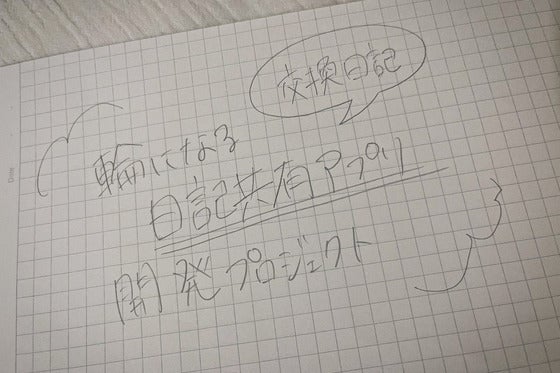 交換日記
輪になる
日記共有アプリ
開発プロジェクト
Date